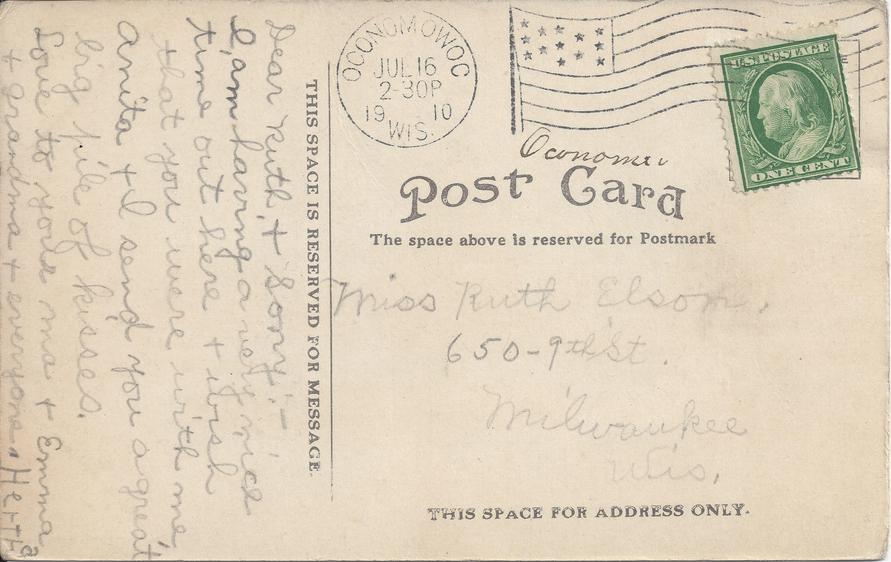 OCONOMOWOC
JUL 16
2-30P
19 10
WIS.
U.S. POSTAGE
ONE CENT
Post Card
The space above is reserved for Postmark
THIS SPACE IS RESERVED FOR MESSAGE
Dear Ruth + Sony:-
I am having a very nice
time out here + wish
that you were with me
Anita + I send you a great
big pile of kisses.
Love to your ma + Emma
+ grandma + everyone, Hertha
Miss Ruth Elsom.
650-9th St.
Milwaukee
Wis.
THIS SPACE FOR ADDRESS ONLY.